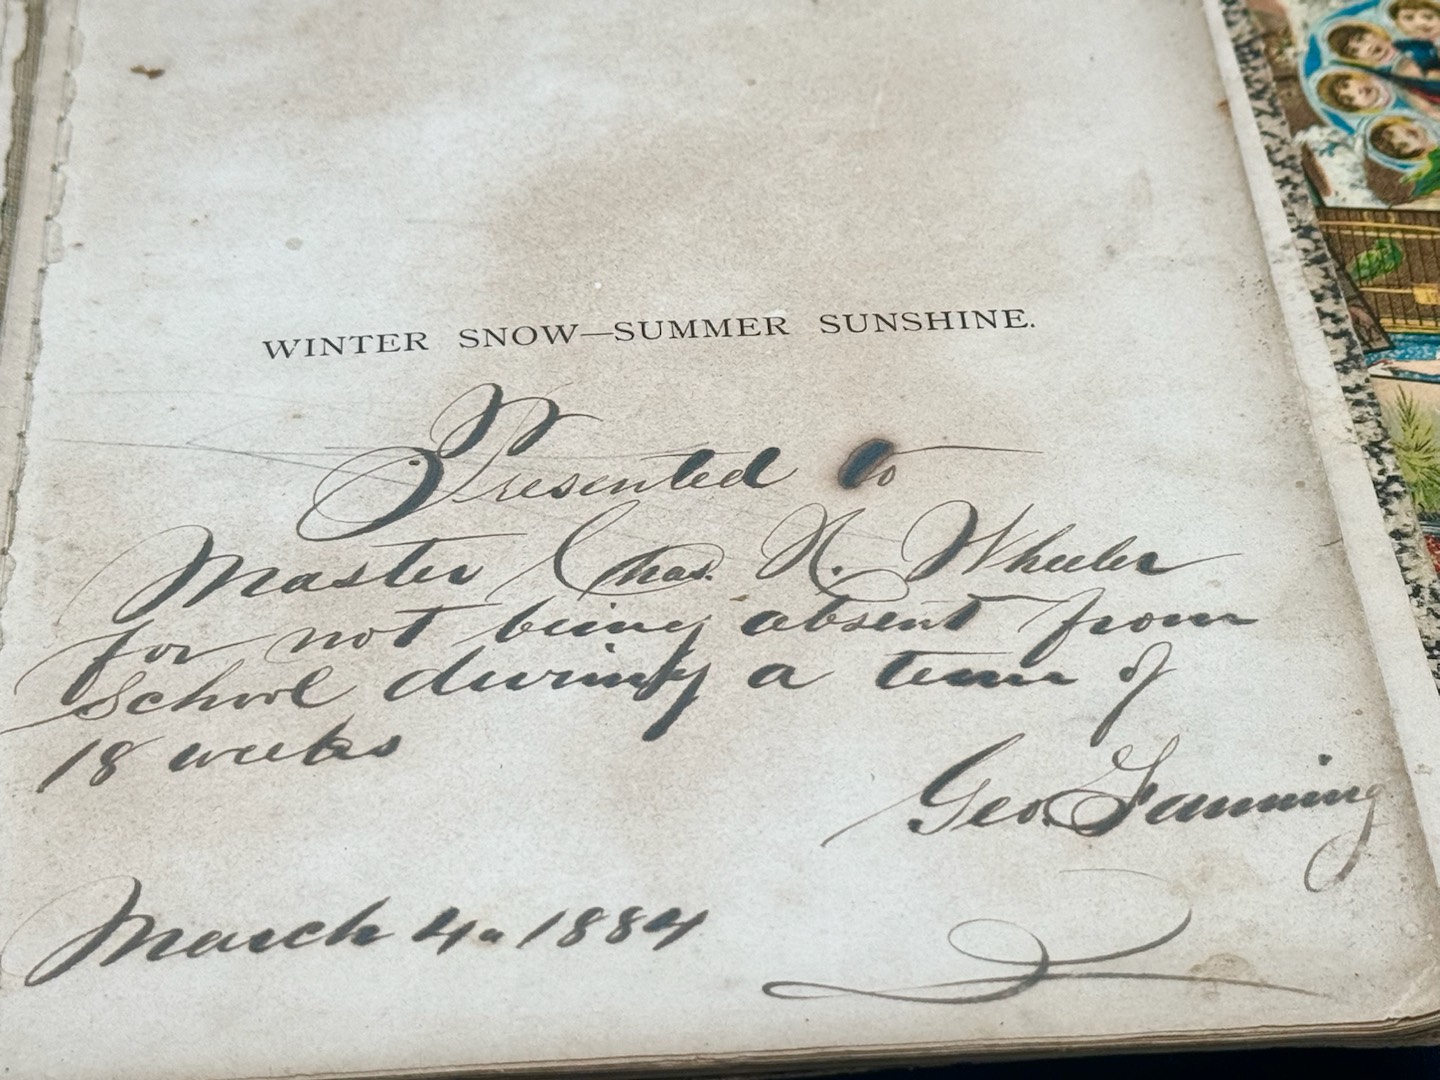 WINTER SNOW—SUMMER SUNSHINE.
Presented to
Master Chas. N. Wheeler
for not being absent from
School during a term of
18 weeks
Geo. Fanning
March 4. 1884